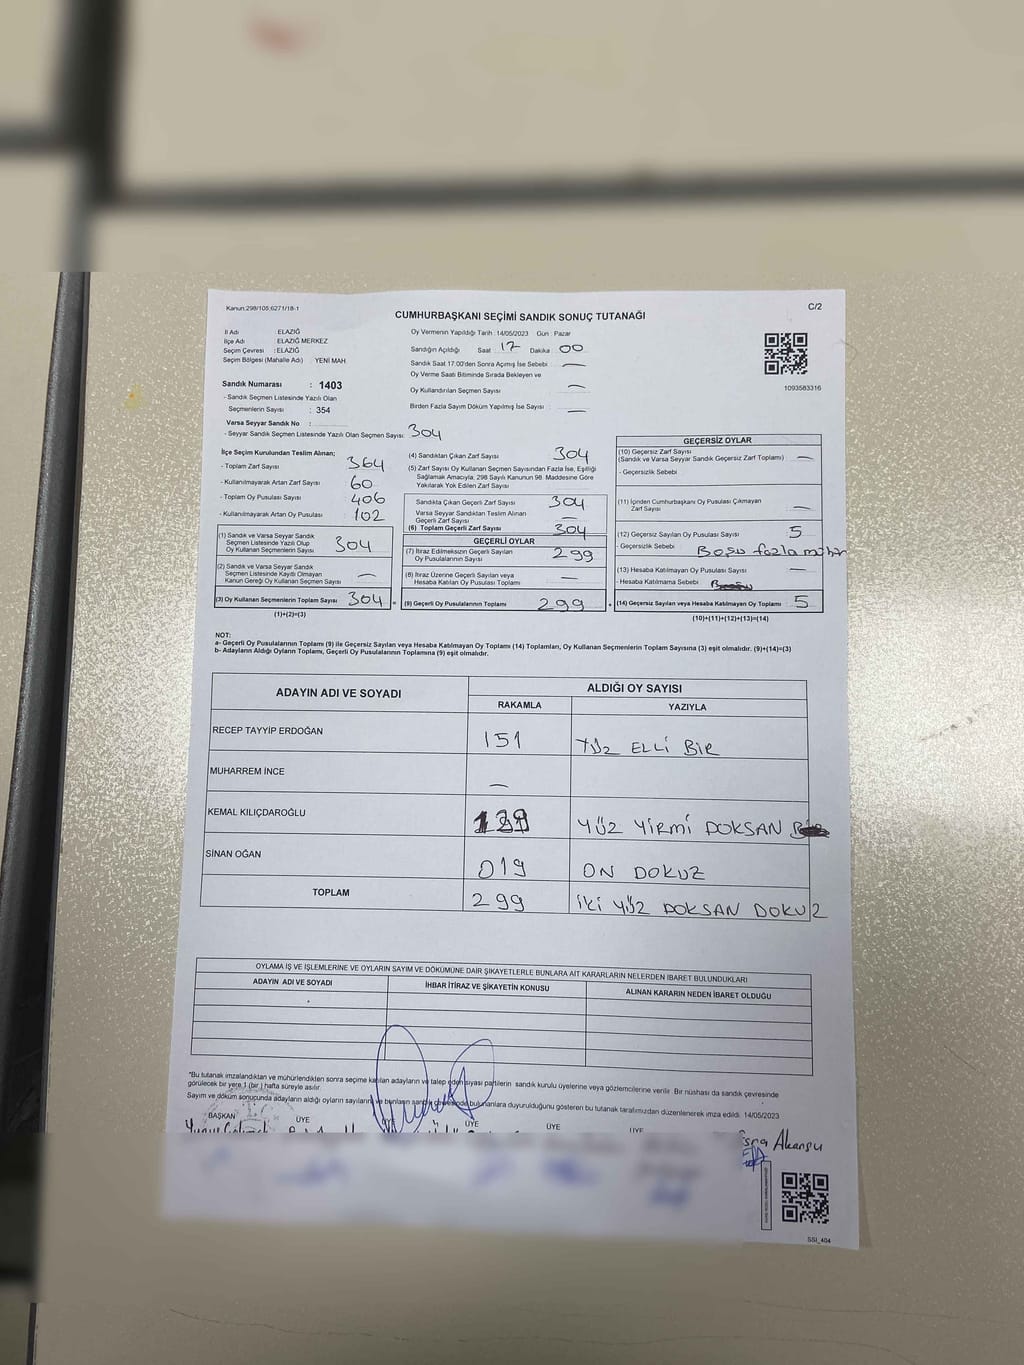 Kanun:298/105;6271/18-1
C/2
CUMHURBAŞKANI SEÇİMİ SANDIK SONUÇ TUTANAĞI
İl Adı : ELAZIĞ
İlçe Adı : ELAZIĞ MERKEZ
Seçim Çevresi : ELAZIĞ
Seçim Bölgesi (Mahalle Adı) : YENİ MAH.
Sandık Numarası : 1403
- Sandık Seçmen Listesinde Yazılı Olan
Seçmenlerin Sayısı : 354
Varsa Seyyar Sandık No :
- Seyyar Sandık Seçmen Listesinde Yazılı Olan Seçmen Sayısı: 304
Oy Vermenin Yapıldığı Tarih : 14/05/2023 Gün : Pazar
Sandığın Açıldığı Saat : 17 Dakika : 00
Sandık Saat 17:00'den Sonra Açımış İse Sebebi —
Oy Verme Saati Bitiminde Sırada Bekleyen ve
Oy Kullandırılan Seçmen Sayısı —
Birden Fazla Sayım Döküm Yapılmış İse Sayısı —
1093583316
İlçe Seçim Kurulundan Teslim Alınan;
- Toplam Zarf Sayısı 364
- Kullanılmayarak Artan Zarf Sayısı 60
- Toplam Oy Pusulası Sayısı 406
- Kullanılmayarak Artan Oy Pusulası 102
(1) Sandık ve Varsa Seyyar Sandık
Seçmen Listesinde Yazılı Olup
Oy Kullanan Seçmenlerin Sayısı 304
(2) Sandık ve Varsa Seyyar Sandık
Seçmen Listesinde Kayıtlı Olmayan
Kanun Gereği Oy Kullanan Seçmen Sayısı —
(3) Oy Kullanan Seçmenlerin Toplam Sayısı 304 =
(1)+(2)=(3)
(4) Sandıktan Çıkan Zarf Sayısı 304
(5) Zarf Sayısı Oy Kullanan Seçmen Sayısından Fazla İse, Eşitliği
Sağlamak Amacıyla; 298 Sayılı Kanunun 98. Maddesine Göre
Yakılarak Yok Edilen Zarf Sayısı
Sandıkta Çıkan Geçerli Zarf Sayısı 304
Varsa Seyyar Sandıktan Teslim Alınan
Geçerli Zarf Sayısı —
(6) Toplam Geçerli Zarf Sayısı 304
GEÇERLİ OYLAR
(7) İtiraz Edilmeksizin Geçerli Sayılan
Oy Pusulalarının Sayısı 299
(8) İtiraz Üzerine Geçerli Sayılan veya
Hesaba Katılan Oy Pusulası Toplamı —
(9) Geçerli Oy Pusulalarının Toplamı 299 +
GEÇERSİZ OYLAR
(10) Geçersiz Zarf Sayısı
(Sandık ve Varsa Seyyar Sandık Geçersiz Zarf Toplamı) —
- Geçersizlik Sebebi
(11) İçinden Cumhurbaşkanı Oy Pusulası Çıkmayan
Zarf Sayısı —
(12) Geçersiz Sayılan Oy Pusulası Sayısı 5
- Geçersizlik Sebebi fazla mühür
(13) Hesaba Katılmayan Oy Pusulası Sayısı —
- Hesaba Katılmama Sebebi
(14) Geçersiz Sayılan veya Hesaba Katılmayan Oy Toplamı 5
(10)+(11)+(12)+(13)=(14)
NOT:
a- Geçerli Oy Pusulalarının Toplamı (9) ile Geçersiz Sayılan veya Hesaba Katılmayan Oy Toplamı (14) Toplamları, Oy Kullanan Seçmenlerin Toplam Sayısına (3) eşit olmalıdır. (9)+(14)=(3)
b- Adayların Aldığı Oyların Toplamı, Geçerli Oy Pusulalarının Toplamına (9) eşit olmalıdır.
ADAYIN ADI VE SOYADI
ALDIĞI OY SAYISI
RAKAMLA YAZIYLA
RECEP TAYYİP ERDOĞAN 151 YÜZ ELLİ BİR
MUHARREM İNCE —
KEMAL KILIÇDAROĞLU YÜZ YİRMİ DOKSAN
SİNAN OĞAN 019 ON DOKUZ
TOPLAM 299 İKİ YÜZ DOKSAN DOKUZ
OYLAMA İŞ VE İŞLEMLERİNE VE OYLARIN SAYIM VE DÖKÜMÜNE DAİR ŞİKAYETLERLE BUNLARA AİT KARARLARIN NELERDEN İBARET BULUNDUKLARI
ADAYIN ADI VE SOYADI İHBAR İTİRAZ VE ŞİKAYETİN KONUSU ALINAN KARARIN NEDEN İBARET OLDUĞU
*Bu tutanak imzalandıktan ve mühürlendikten sonra seçime katılan adayların ve talep eden siyasi partilerin sandık kurulu üyelerine veya gözlemcilerine verilir. Bir nüshası da sandık çevresinde
görülecek bir yere 1 (bir ) hafta süreyle asılır.
Sayım ve döküm sonucunda adayların aldığı oyların sayılarını ve bunların sandık çevresinde bulunanlara duyurulduğunu gösteren bu tutanak tarafımızdan düzenlenerek imza edildi. 14/05/2023
BAŞKAN ÜYE ÜYE ÜYE ÜYE ÜYE
Esra Akansu
SSI_404